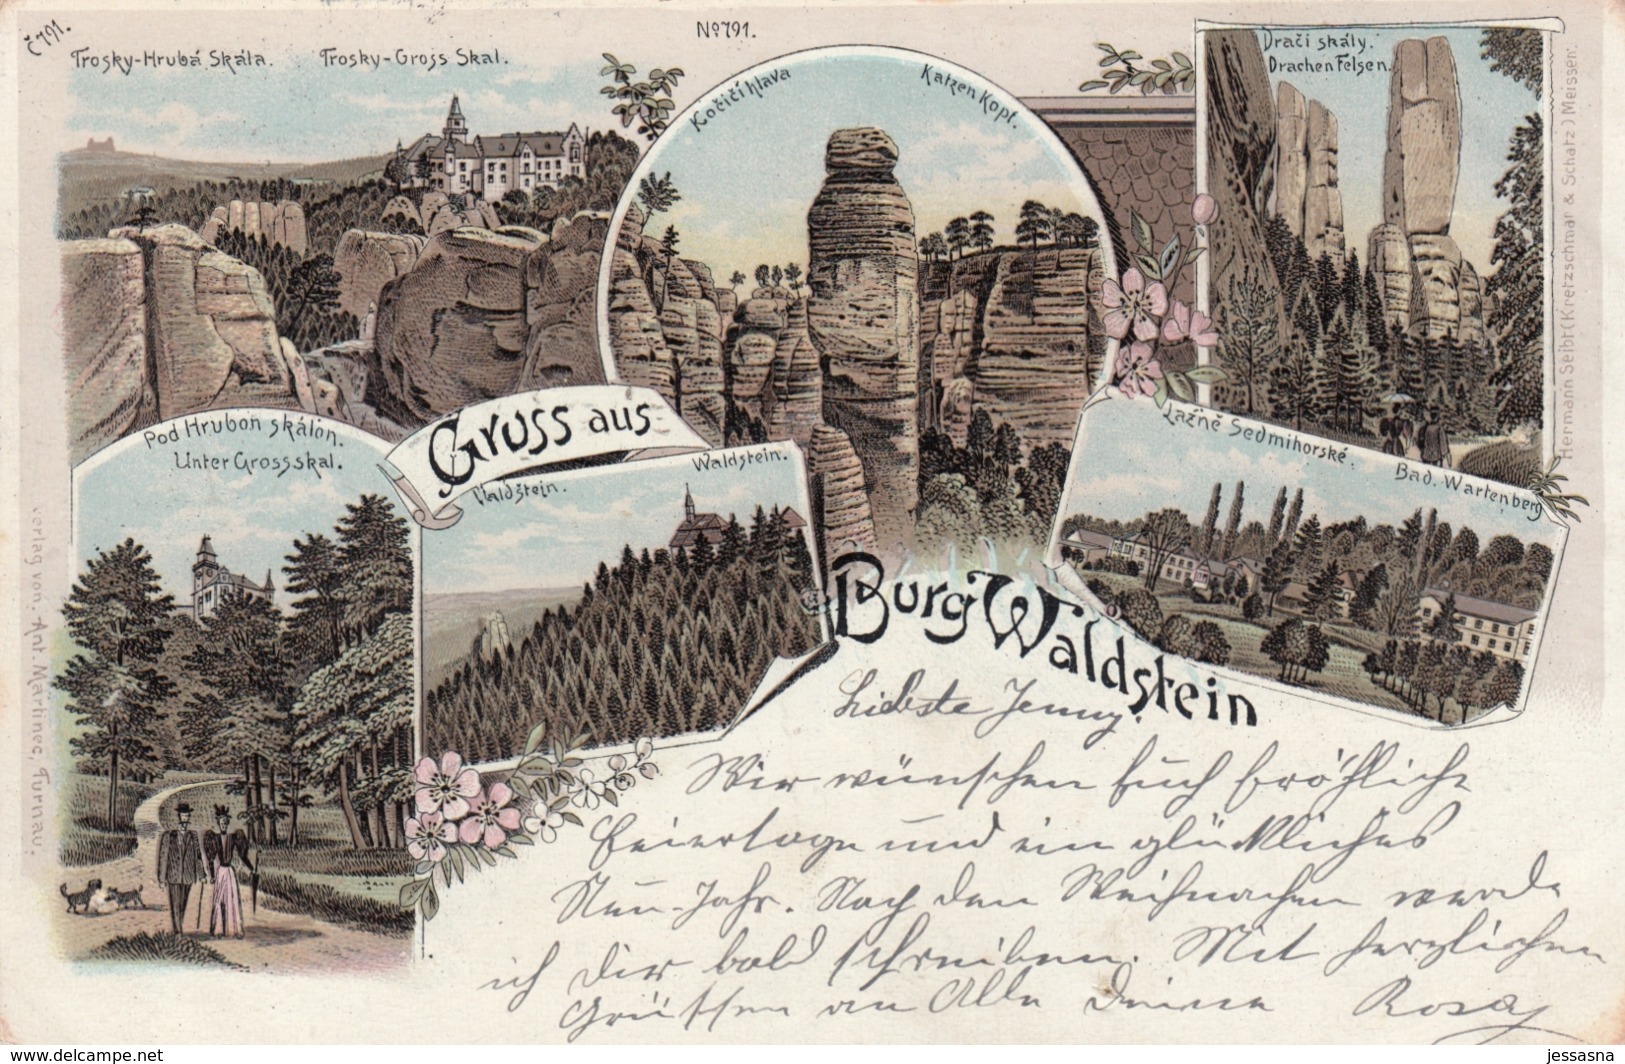 Č 791.
No 791.
Trosky-Hrubá Skála. Trosky-Gross Skal.
Kočičí hlava Katzen Kopf.
Dračí skály.
Drachen Felsen.
Hermann Seibt (Kretzschmar & Schatz) Meissen.
Pod Hrubou skálou.
Unter Grossskal.
Gruss aus
Burg Waldstein
Valdštein. Waldstein.
Lázně Sedmihorské. Bad. Wartenberg
Verlag von: Ant. Martinec, Turnau.
Liebste Jenny!
Wir wünschen Euch fröhliche
Feiertage und ein glückliches
Neu-Jahr. Nach den Weihnachen werde
ich Dir bald schreiben. Mit herzlichen
Grüssen an Alle Deine Rosa
jessasna